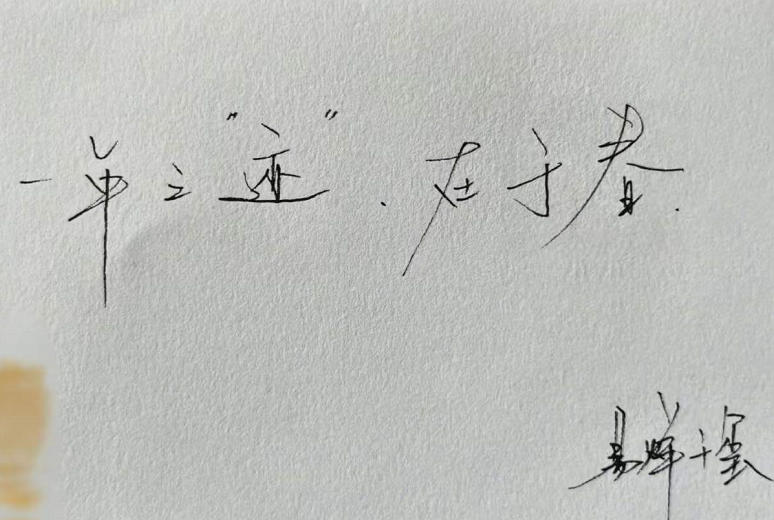 一单之“迹”，在于春.
易烊千玺